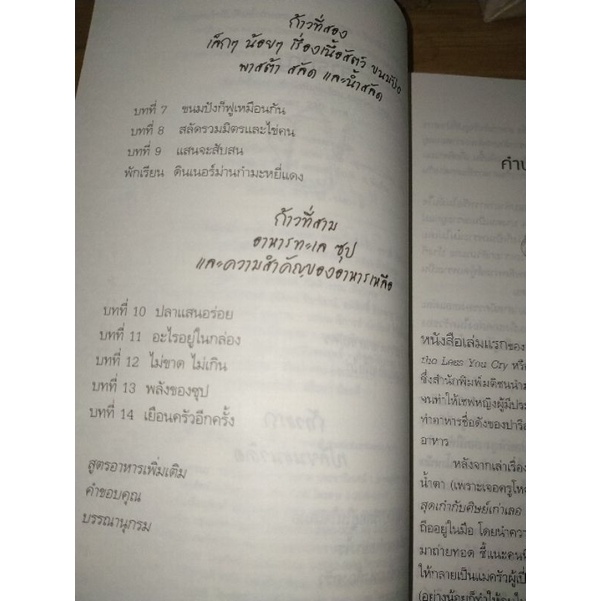 ก้าวที่สอง
เล็กๆ น้อยๆ เรื่องเนื้อสัตว์ ขนมปัง
พาสต้า สลัด และน้ำสลัด
บทที่ 7 ขนมปังก็ฟูเหมือนกัน
บทที่ 8 สลัดรวมมิตรและไข่คน
บทที่ 9 แสนจะสับสน
พักเรียน ดินเนอร์ม่านกำมะหยี่แดง
ก้าวที่สาม
อาหารทะเล ซุป
และความสำคัญของอาหารเหลือ
บทที่ 10 ปลาแสนอร่อย
บทที่ 11 อะไรอยู่ในกล่อง
บทที่ 12 ไม่ขาด ไม่เกิน
บทที่ 13 พลังของซุป
บทที่ 14 เยือนครัวอีกครั้ง
สูตรอาหารเพิ่มเติม
คำขอบคุณ
บรรณานุกรม
หนังสือเล่มแรกของ
the Less You Cry หรือ
ซึ่งสำนักพิมพ์มติชนนำม
ทำอาหารชื่อดังของปารีส
อาหาร
หลังจากเล่าเรื่อง
น้ำตา (เพราะเจอครูโหด
สุดเก๋ากับศิษย์เก่าเลอ
ถืออยู่ในมือ โดยนำควา
มาถ่ายทอด ชี้แนะคนที่
ให้กลายเป็นแม่ครัวผู้เปี่